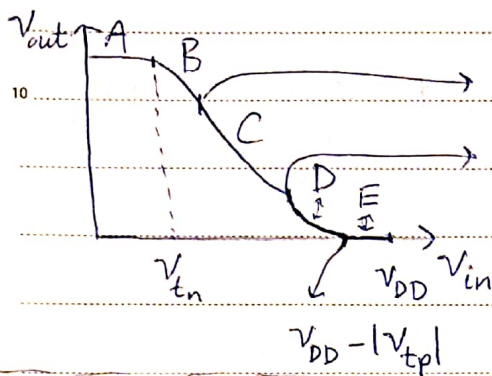 Vout
A
B
10
C
D
E
Vtn
VDD
Vin
VDD - |Vtp|